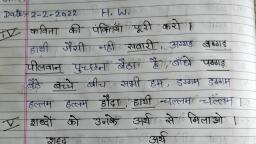 Date:- 2-2-2022 H.W.
IV कविता की पंक्तियाँ पूरी करो।
हाथी जैसी नहीं सवारी, अग्गड़ बग्गड़
पीलवान पुच्छन बैठा है, बाँधे पग्गड़
बैठे बच्चे बीच सभी हम, डगमग डगमग
हल्लम हल्लम हौदा, हाथी चल्लम चल्लम।
V शब्दों को उनके अर्थ से मिलाओ।
शब्द अर्थ